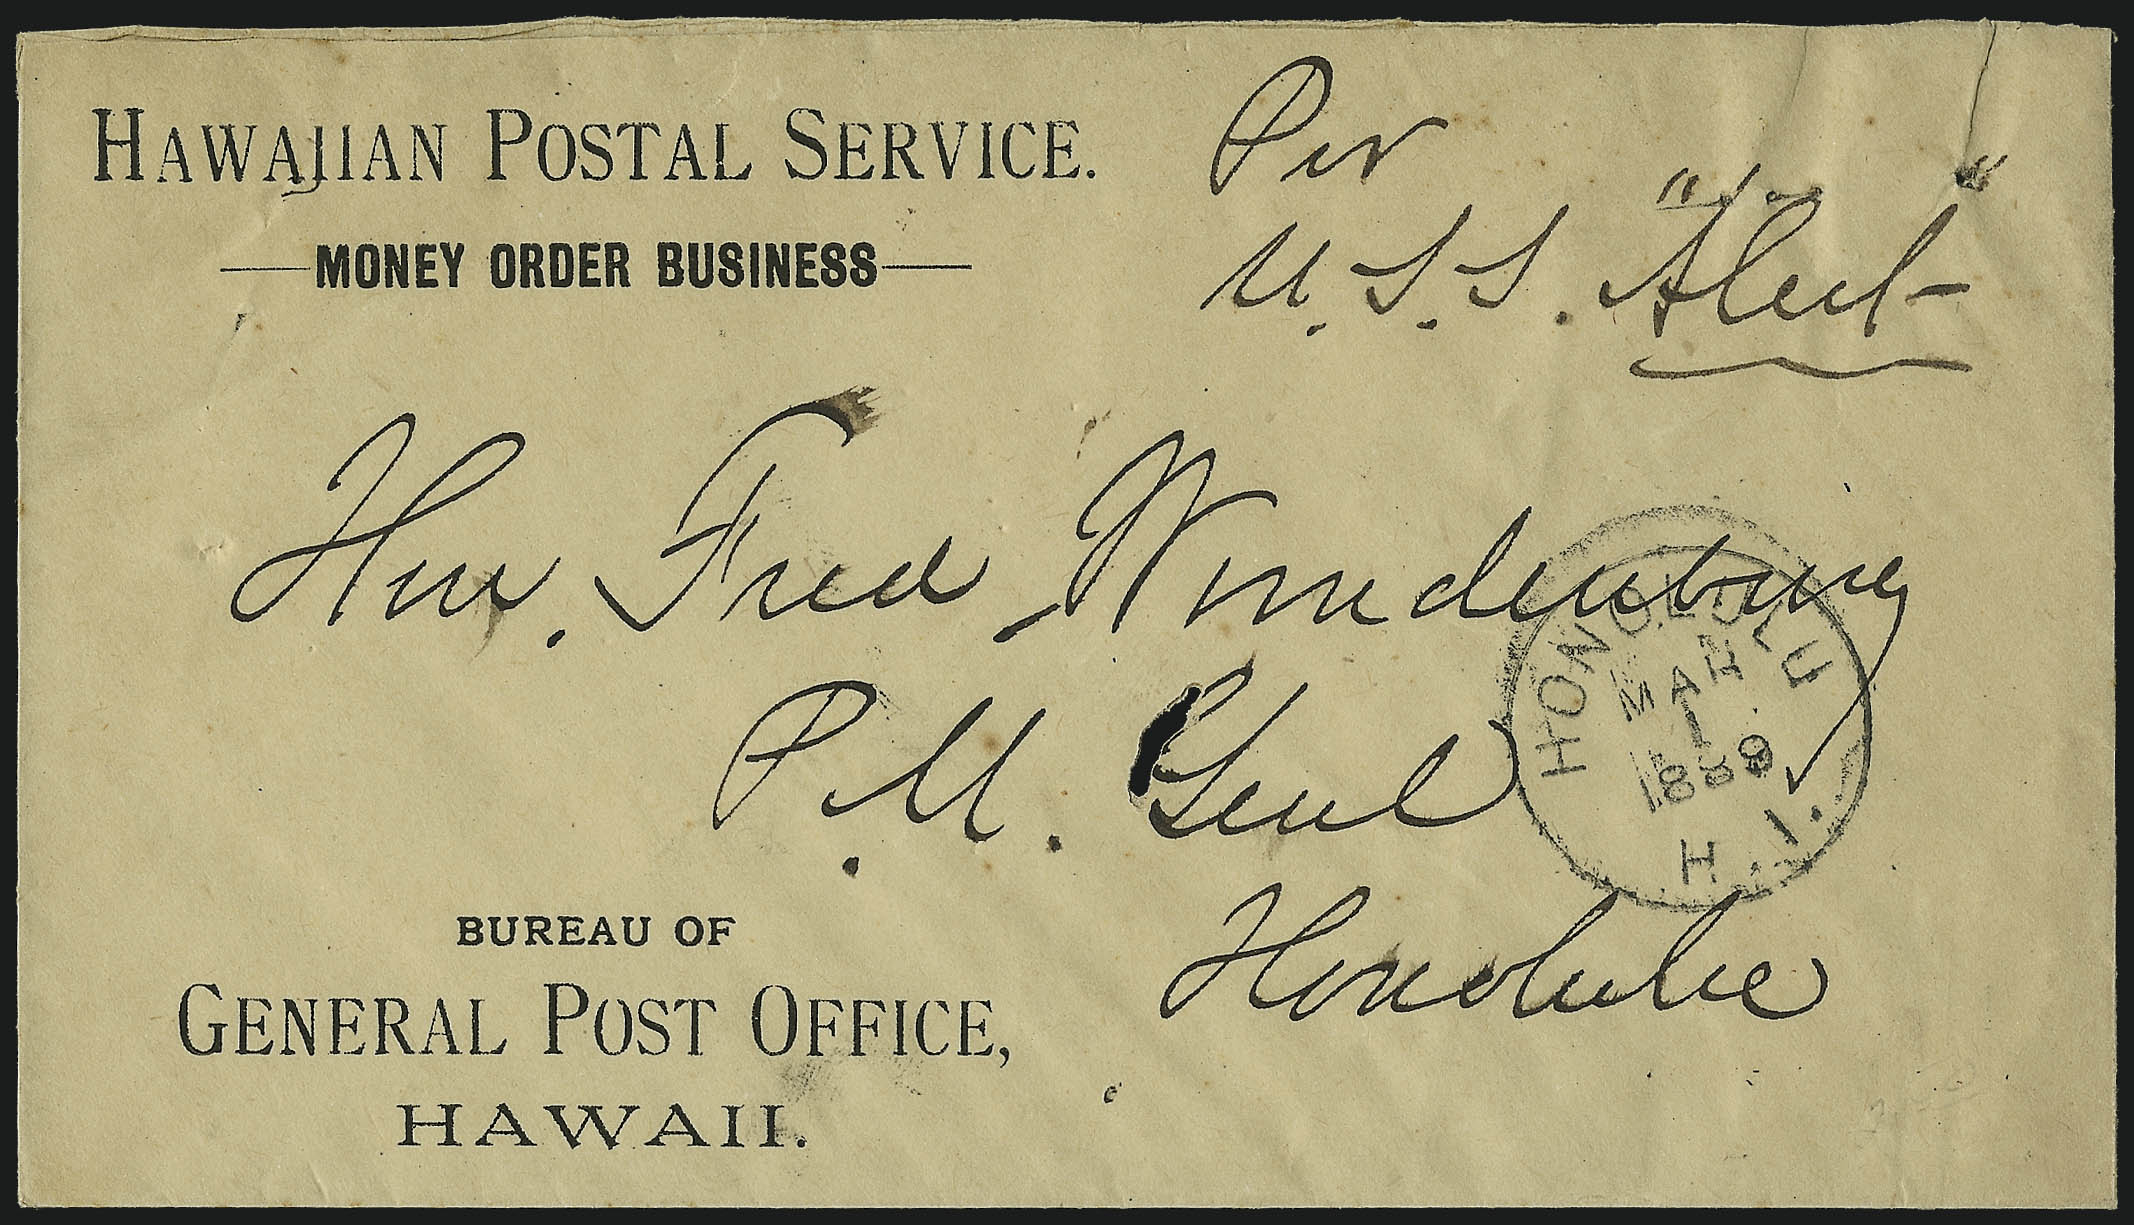 HAWAIIAN POSTAL SERVICE.
MONEY ORDER BUSINESS
Per
U.S.S. "Alert"
Hon. Fred Wundenburg
P.M. Genl
Honolulu
HONOLULU
MAR
1
1889
H.I.
BUREAU OF
GENERAL POST OFFICE,
HAWAII.